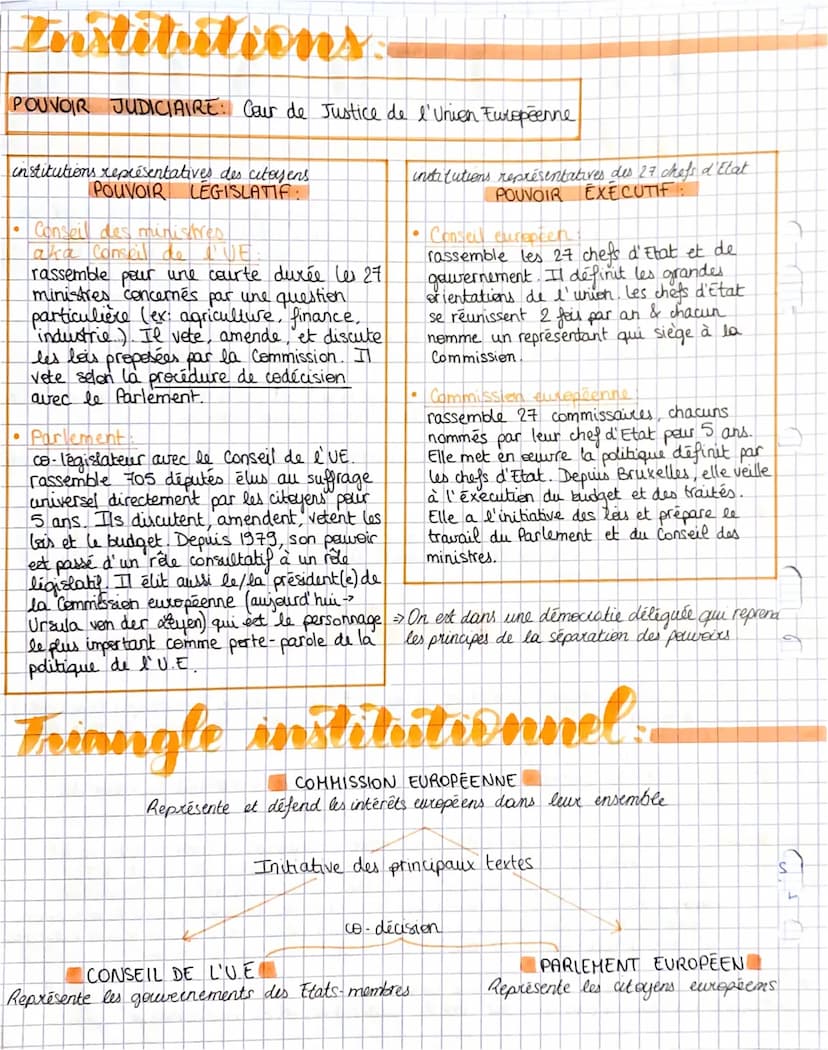 Institutions:
POUVOIR JUDICIAIRE: Cour de Justice de l'Union Européenne
institutions représentatives des citoyens
POUVOIR LÉGISLATIF:
• Conseil des ministres
aka Conseil de l'UE:
rassemble pour une courte durée les 27
ministres concernés par une question
particulière (ex: agriculture, finance,
industrie..). Il vote, amende, et discute
les lois proposées par la Commission. Il
vote selon la procédure de codécision
avec le Parlement.
• Parlement:
co-législateur avec le Conseil de l'UE.
rassemble 705 députés élus au suffrage
universel directement par les citoyens pour
5 ans. Ils discutent, amendent, votent les
lois et le budget. Depuis 1979, son pouvoir
est passé d'un rôle consultatif à un rôle
législatif. Il élit aussi le/la président(e) de
la Commission européenne (aujourd'hui →
Ursula von der Leyen) qui est le personnage
le plus important comme porte-parole de la
politique de l'U.E.
institutions représentatives des 27 chefs d'État
POUVOIR ÉXÉCUTIF:
• Conseil européen:
rassemble les 27 chefs d'État et de
gouvernement. Il définit les grandes
orientations de l'union. Les chefs d'État
se réunissent 2 fois par an & chacun
nomme un représentant qui siège à la
Commission.
• Commission européenne:
rassemble 27 commissaires, chacuns
nommés par leur chef d'État pour 5 ans.
Elle met en oeuvre la politique définit par
les chefs d'État. Depuis Bruxelles, elle veille
à l'éxécution du budget et des traités.
Elle a l'initiative des lois et prépare le
travail du Parlement et du Conseil des
ministres.
⇒ On est dans une démocratie déléguée qui reprend
les principes de la séparation des pouvoirs
Triangle institutionnel:
COMMISSION EUROPÉENNE
Représente et défend les intérêts européens dans leur ensemble
Initiative des principaux textes
co-décision
CONSEIL DE L'U.E
Représente les gouvernements des États-membres
PARLEMENT EUROPÉEN
Représente les citoyens européens